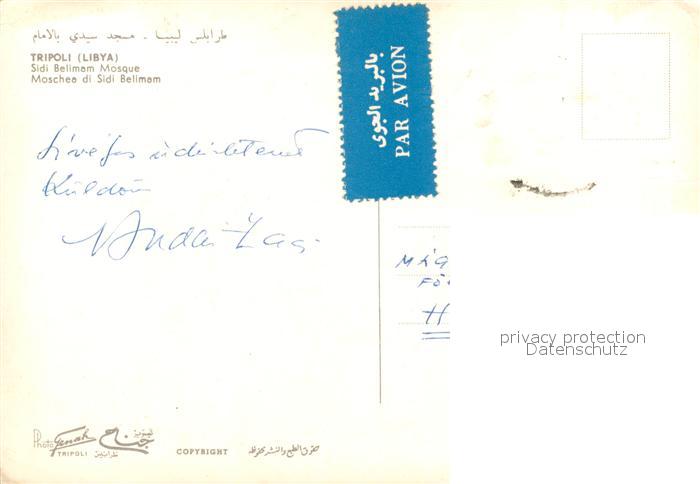 طرابلس ليبيا - مسجد سيدي بالامام
TRIPOLI (LIBYA)
Sidi Belimam Mosque
Moschea di Sidi Belimam
بالبريد الجوى
PAR AVION
Szívélyes üdvözletemet
Küldöm
MÁG
FŐ
H
privacy protection
Datenschutz
Photo Genah جناح
TRIPOLI طرابلس
COPYRIGHT حقوق الطبع والنشر محفوظة